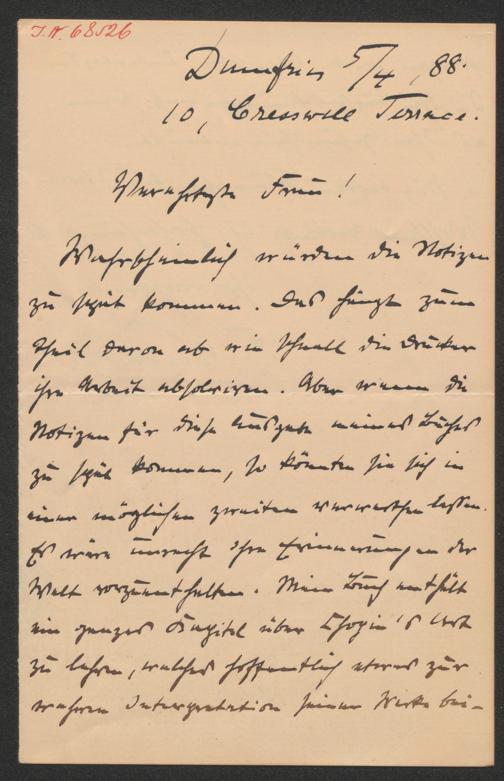 I.N. 68526
Dumfries 5/4, 88.
10, Cresswell Terrace.
Verehrteste Frau!
Wahrscheinlich würden die Notizen
zu spät kommen. Das hängt zum
Theil davon ab wie schnell die Drucker
ihre Arbeit absolviren. Aber wenn die
Notizen für diese Ausgabe meines Buches
zu spät kommen, so könnten sie sich in
einer möglichen zweiten verwerthen lassen.
Es wäre unrecht Ihre Erinnerungen der
Welt vorzuenthalten. Mein Buch enthält
ein ganzes Kapitel über Chopin's Art
zu lehren, welches hoffentlich etwas zur
wahren Interpretation seiner Werke bei-